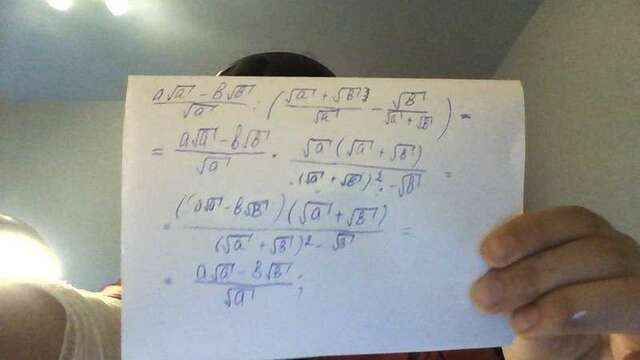 (a√a - b√b)/√a : ((√a + √b)/√a - √b/(√a + √b)) =
= (a√a - b√b)/√a · √a(√a + √b)/((√a + √b)² · -√b) =
= (a√a - b√b)(√a + √b)/((√a + √b)² - √b) =
= (a√a - b√b)/√a ;